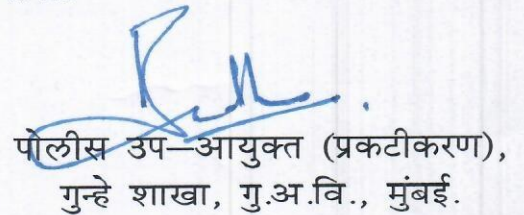 पोलीस उप—आयुक्त (प्रकटीकरण),
गुन्हे शाखा, गु.अ.वि., मुंबई.